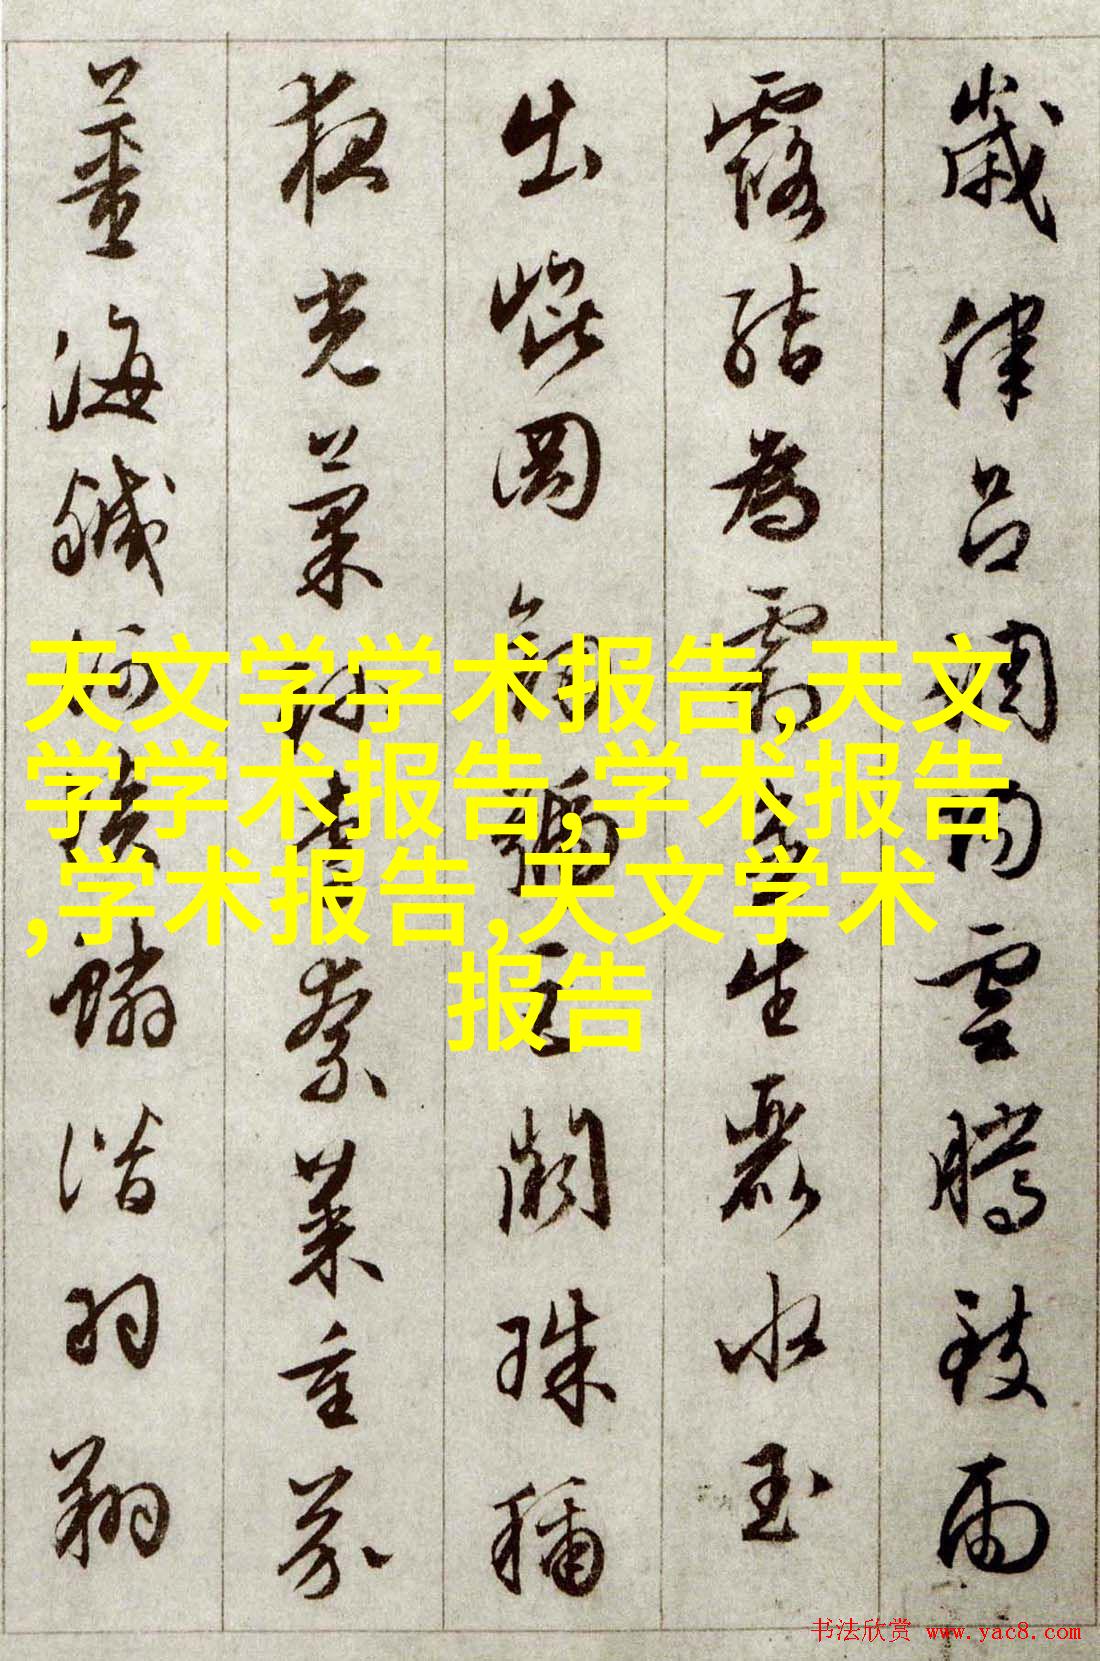 歲律呂調陽雲騰致雨
露結為霜金生麗水玉
出崐岡劍號巨闕珠稱
夜光菓珍李柰菜重芥
薑海鹹河淡鱗潛羽翔
天文学学术报告,天文
学学术报告,学术报告
,学术报告,天文学术
报告
书法欣赏 www.yac8.com